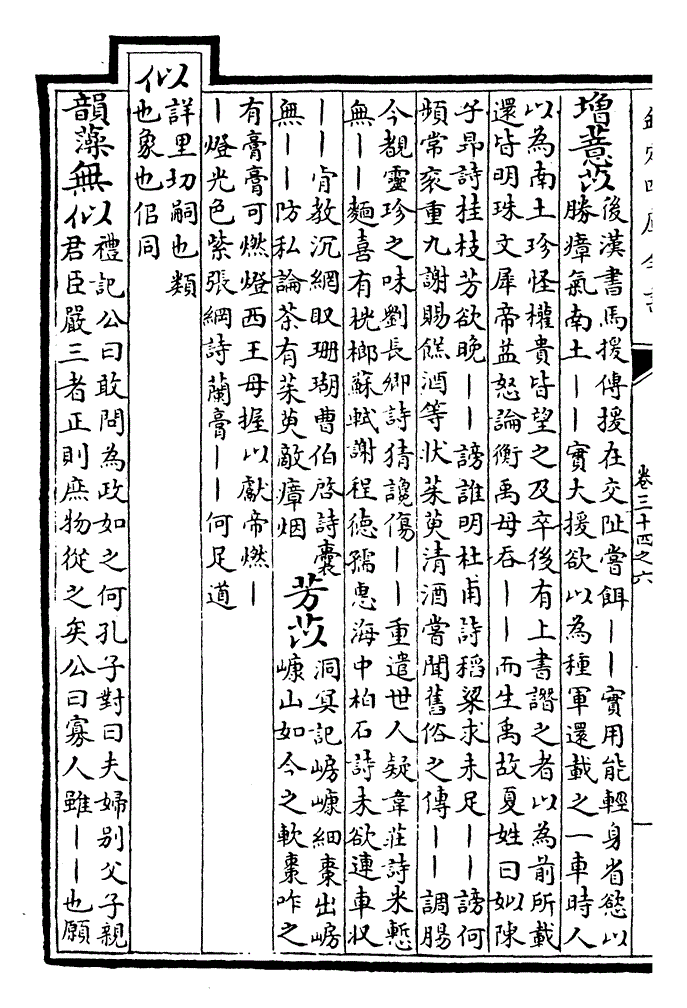 欽定四庫全書
卷三十四之六
增薏苡後漢書馬援傳援在交阯嘗餌——實用能輕身省慾以
勝瘴氣南土——實大援欲以為種軍還載之一車時人
以為南土珍怪權貴皆望之及卒後有上書譖之者以為前所載
還皆明珠文犀帝益怒論衡禹母吞——而生禹故夏姓曰姒陳
子昂詩桂枝芳欲晚——謗誰明杜甫詩稻粱求未足——謗何
頻常衮重九謝賜餻酒等狀茱萸清酒嘗聞舊俗之傳——調腸
今覩靈珍之味劉長卿詩猜讒傷——重遣世人疑韋莊詩米慙
無——麵喜有桄榔蘇軾謝程德孺惠海中柏石詩未欲連車收
——肯教沉網取珊瑚曹伯啓詩囊
無——防私論茶有茱萸敵瘴烟
芳苡洞冥記㟍嵻細棗出㟍
嵻山如今之軟棗咋之
有膏膏可燃燈西王母握以獻帝燃—
—燈光色紫張綱詩蘭膏——何足道
似
詳里切嗣也類
也象也佀同
韻藻無似禮記公曰敢問為政如之何孔子對曰夫婦別父子親
君臣嚴三者正則庶物從之矣公曰寡人雖——也願